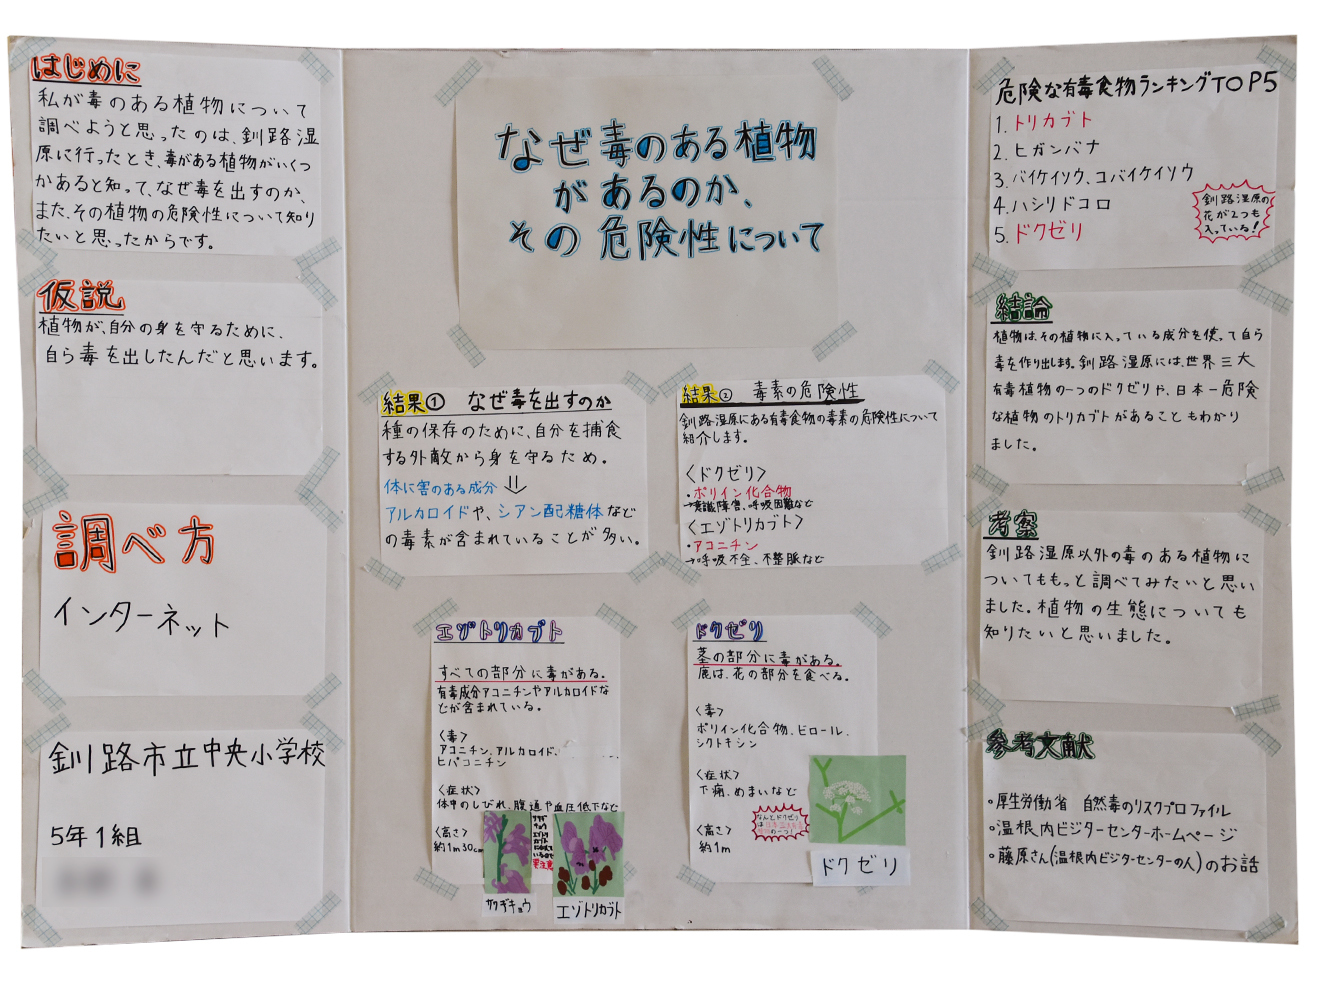 はじめに
私が毒のある植物について
調べようと思ったのは、釧路湿
原に行ったとき、毒がある植物がいくつ
かあると知って、なぜ毒を出すのか、
また、その植物の危険性について知り
たいと思ったからです。
仮説
植物が、自分の身を守るために、
自ら毒を出したんだと思います。
調べ方
インターネット
釧路市立中央小学校
5年1組
なぜ毒のある植物
があるのか、
その危険性について
結果① なぜ毒を出すのか
種の保存のために、自分を捕食
する外敵から身を守るため。
体に害のある成分
アルカロイドや、シアン配糖体など
の毒素が含まれていることが多い。
結果② 毒素の危険性
釧路湿原にある有毒食物の毒素の危険性について
紹介します。
〈ドクゼリ〉
・ポリイン化合物
→意識障害、呼吸困難など
〈エゾトリカブト〉
・アコニチン
→呼吸不全、不整脈など
エゾトリカブト
すべての部分に毒がある。
有毒成分アコニチンやアルカロイドな
どが含まれている。
〈毒〉
アコニチン、アルカロイド、
ヒパコニチン
〈症状〉
体中のしびれ、腹痛や血圧低下など
〈高さ〉
約1m30cm
サワギキョウ
エゾトリカブト
ドクゼリ
茎の部分に毒がある。
鹿は、花の部分を食べる。
〈毒〉
ポリイン化合物、ビロール、
シクトキシン
〈症状〉
下痢、めまいなど
〈高さ〉
約1m
なんとドクゼリ
ドクゼリ
危険な有毒食物ランキングTOP5
1.トリカブト
2.ヒガンバナ
3.バイケイソウ、コバイケイソウ
4.ハシリドコロ
5.ドクゼリ
釧路湿原の
花が2つも
入っている!
結論
植物はその植物に入っている成分を使って自ら
毒を作り出します。釧路湿原には、世界三大
有毒植物の一つのドクゼリや、日本一危険
な植物のトリカブトがあることもわかり
ました。
考察
釧路湿原以外の毒のある植物に
ついてももっと調べてみたいと思い
ました。植物の生態についても
知りたいと思いました。
参考文献
・厚生労働省 自然毒のリスクプロファイル
・温根内ビジターセンターホームページ
・藤原さん(温根内ビジターセンターの人)のお話